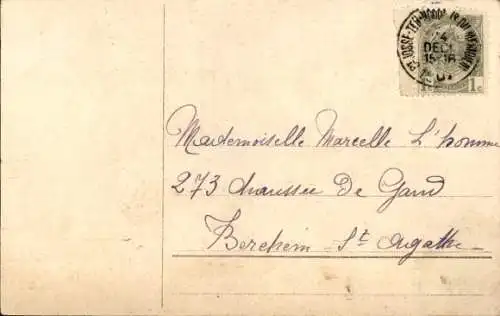 ST JOSSE-TEN-NOODE
24
DEC
15-16
07
1c
Mademoiselle Marcelle L'homme
273 chaussée De Gand
Berchem St. Agathe